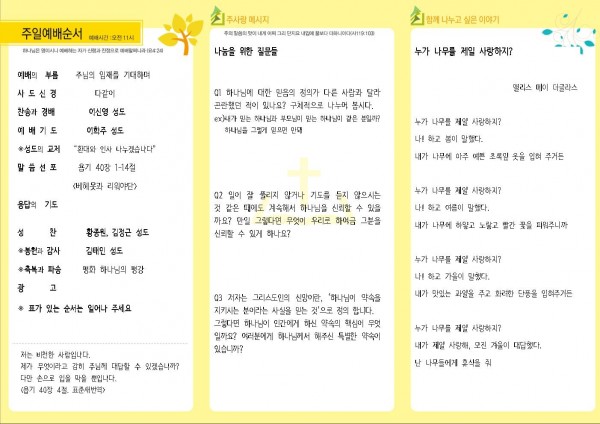 주일예배순서 예배시간 : 오전11시
하나님은 영이시니 예배하는 자가 신령과 진정으로 예배할찌니라 (요4:24)
예배의 부름 주님의 임재를 기대하며
사 도 신 경 다같이
찬송과 경배 이신영 성도
예 배 기 도 이학주 성도
※성도의 교제 "환대와 인사 나누겠습니다"
말 씀 선 포 욥기 40장 1-14절
<베헤못과 리워야단>
응답의 기도
성 찬 황종원, 김정근 성도
※봉헌과 감사 김태인 성도
※축복과 파송 평화 하나님의 평강
광 고
※ 표가 있는 순서는 일어나 주세요
저는 비천한 사람입니다.
제가 무엇이라고 감히 주님께 대답할 수 있겠습니까?
다만 손으로 입을 막을 뿐입니다.
<욥기 40장 4절, 표준새번역>
주사랑 메시지
주의 말씀의 맛이 내게 어찌 그리 단지요 내입에 꿀보다 더하니이다(시119:103)
나눔을 위한 질문들
Q1 하나님에 대한 믿음의 정의가 다른 사람과 달라
곤란했던 적이 있나요? 구체적으로 나누어 봅시다.
ex)내가 믿는 하나님과 부모님이 믿는 하나님이 같은 분일까?
하나님을 그렇게 믿으면 안돼
Q2 일이 잘 풀리지 않거나 기도를 듣지 않으시는
것 같은 때에도 계속해서 하나님을 신뢰할 수 있을
까요? 만일 그렇다면 무엇이 우리로 하여금 그분을
신뢰할 수 있게 하나요?
Q3 저자는 그리스도인의 신앙이란, '하나님이 약속을
지키시는 분이라는 사실을 믿는 것'으로 정의 합니다.
그렇다면 하나님이 인간에게 하신 약속의 핵심이 무엇
일까요? 여러분에게 하나님께서 해주신 특별한 약속이
있습니까?
함께 나누고 싶은 이야기
누가 나무를 제일 사랑하지?
엘리스 메이 더글라스
누가 나무를 제일 사랑하지?
나!! 하고 봄이 말했다.
내가 나무에 아주 예쁜 초록잎 옷을 입혀 주거든
누가 나무를 제일 사랑하지?
나! 하고 여름이 말했다.
내가 나무에 하얗고 노랗고 빨간 꽃을 피워주니까
누가 나무를 제일 사랑하지?
나! 하고 가을이 말했다.
내가 맛있는 과일을 주고 화려한 단풍을 입혀주거든
누가 나무를 제일 사랑하지?
내가 제일 사랑해, 모진 겨울이 대답했다.
난 나무들에게 휴식을 줘